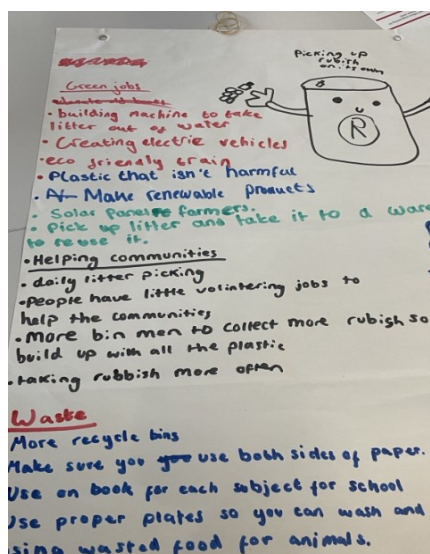 picking up
rubish
on its own
R
Green jobs
• building machine to take
litter out of water
• Creating electric vehicles
• eco friendly train
• Plastic that isn't harmful
• Make renewable products
• Solar panels farmers.
• Pick up litter and take it to a ware
to reuse it.
• Helping communities
• daily litter picking
• People have little volintering jobs to
help the communities
• More bin men to collect more rubish so
build up with all the plastic
• taking rubbish more often
Waste
More recycle bins
Make sure you use both sides of paper.
Use on book for each subject for school
Use proper plates so you can wash and
sing wasted food for animals.